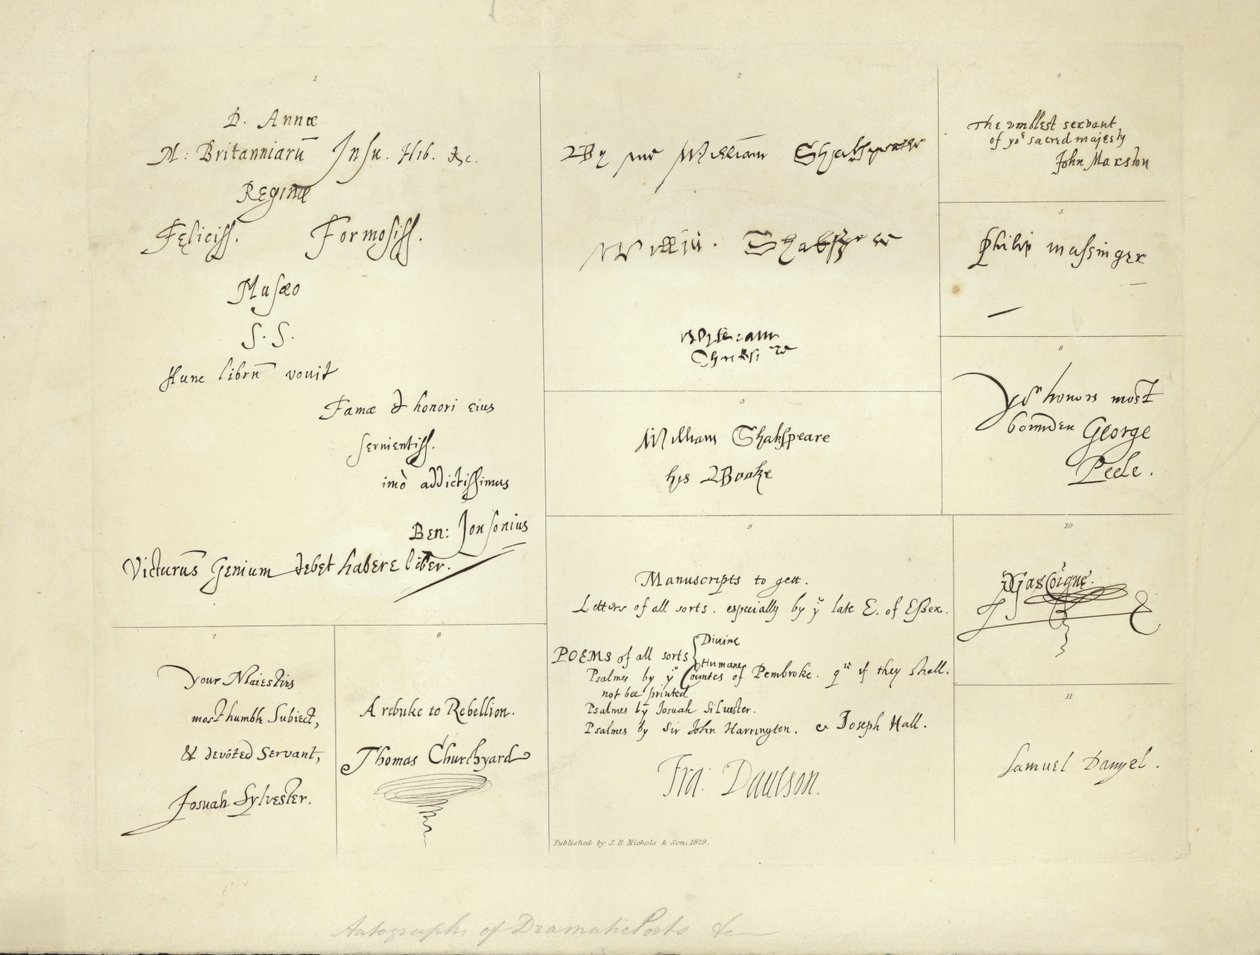 1
D. Annæ
M: Britanniarū Insu. Hib. &c.
Reginæ
Fęliciss. Formosiss.
Musæo
S. S.
Hunc librū vouit
Famæ & honori eius
seruientiss.
imò addictissimus
Ben: Jonsonius
Victurus Genium debet habere liber.
2
By me William Shakspeare
Willm Shakspere
William
Shakspe
3
William Shakspeare
his Booke
4
The umblest servant
of yor sacred majesty
John Marston
5
Philip Massinger
6
Yor honors most
bounden George
Peele.
7
Your Maiesties
most humble Subiect,
& devôted Servant,
Josuah Sylvester.
8
A rebuke to Rebellion.
Thomas Churchyard
9
Manuscripts to gett.
Letters of all sorts. especially by yͤ late E. of Essex.
POEMS of all sorts { Divine
Humane
Psalms by yͤ Countes of Pembroke. qre if they shall.
not bee printed
Psalmes by Josuah Silvester.
Psalmes by Sir John Harrington. & Joseph Hall.
Fra: Dauison.
10
Gascoigne.
11
Samuel Danyel.
Published by J. B. Nichols & Son, 1829.
Autographs of Dramatic Poets &c